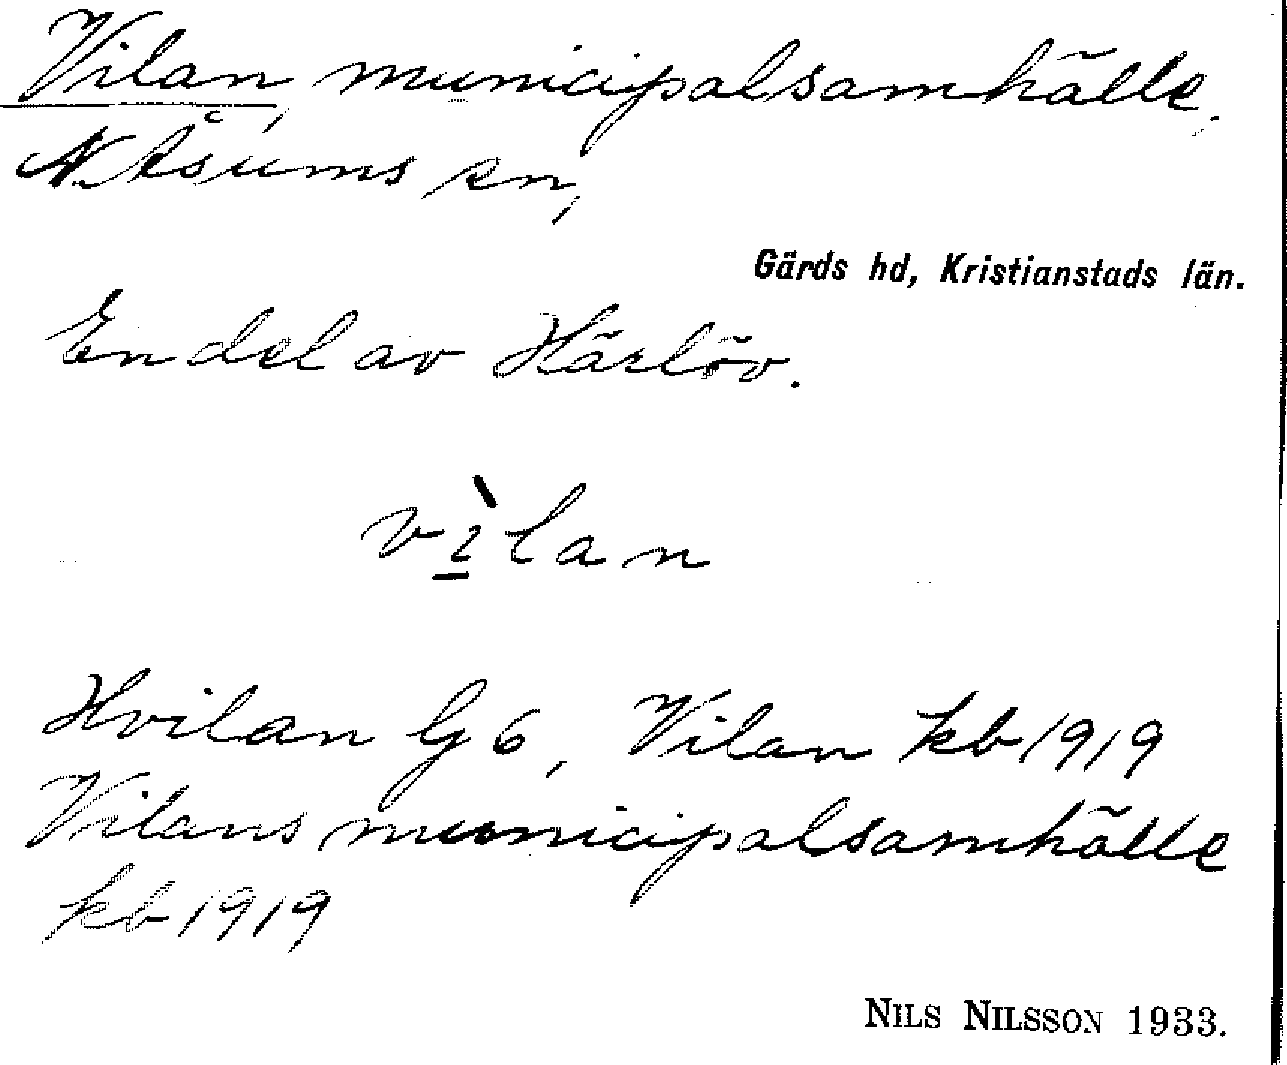 Vilan, municipalsamhälle,
N. Åsums sn,
Gärds hd, Kristianstads län.
En del av Härlöv.
vìlan
Hvilan G6, Vilan kb 1919
Vilans municipalsamhälle
kb 1919
NILS NILSSON 1933.